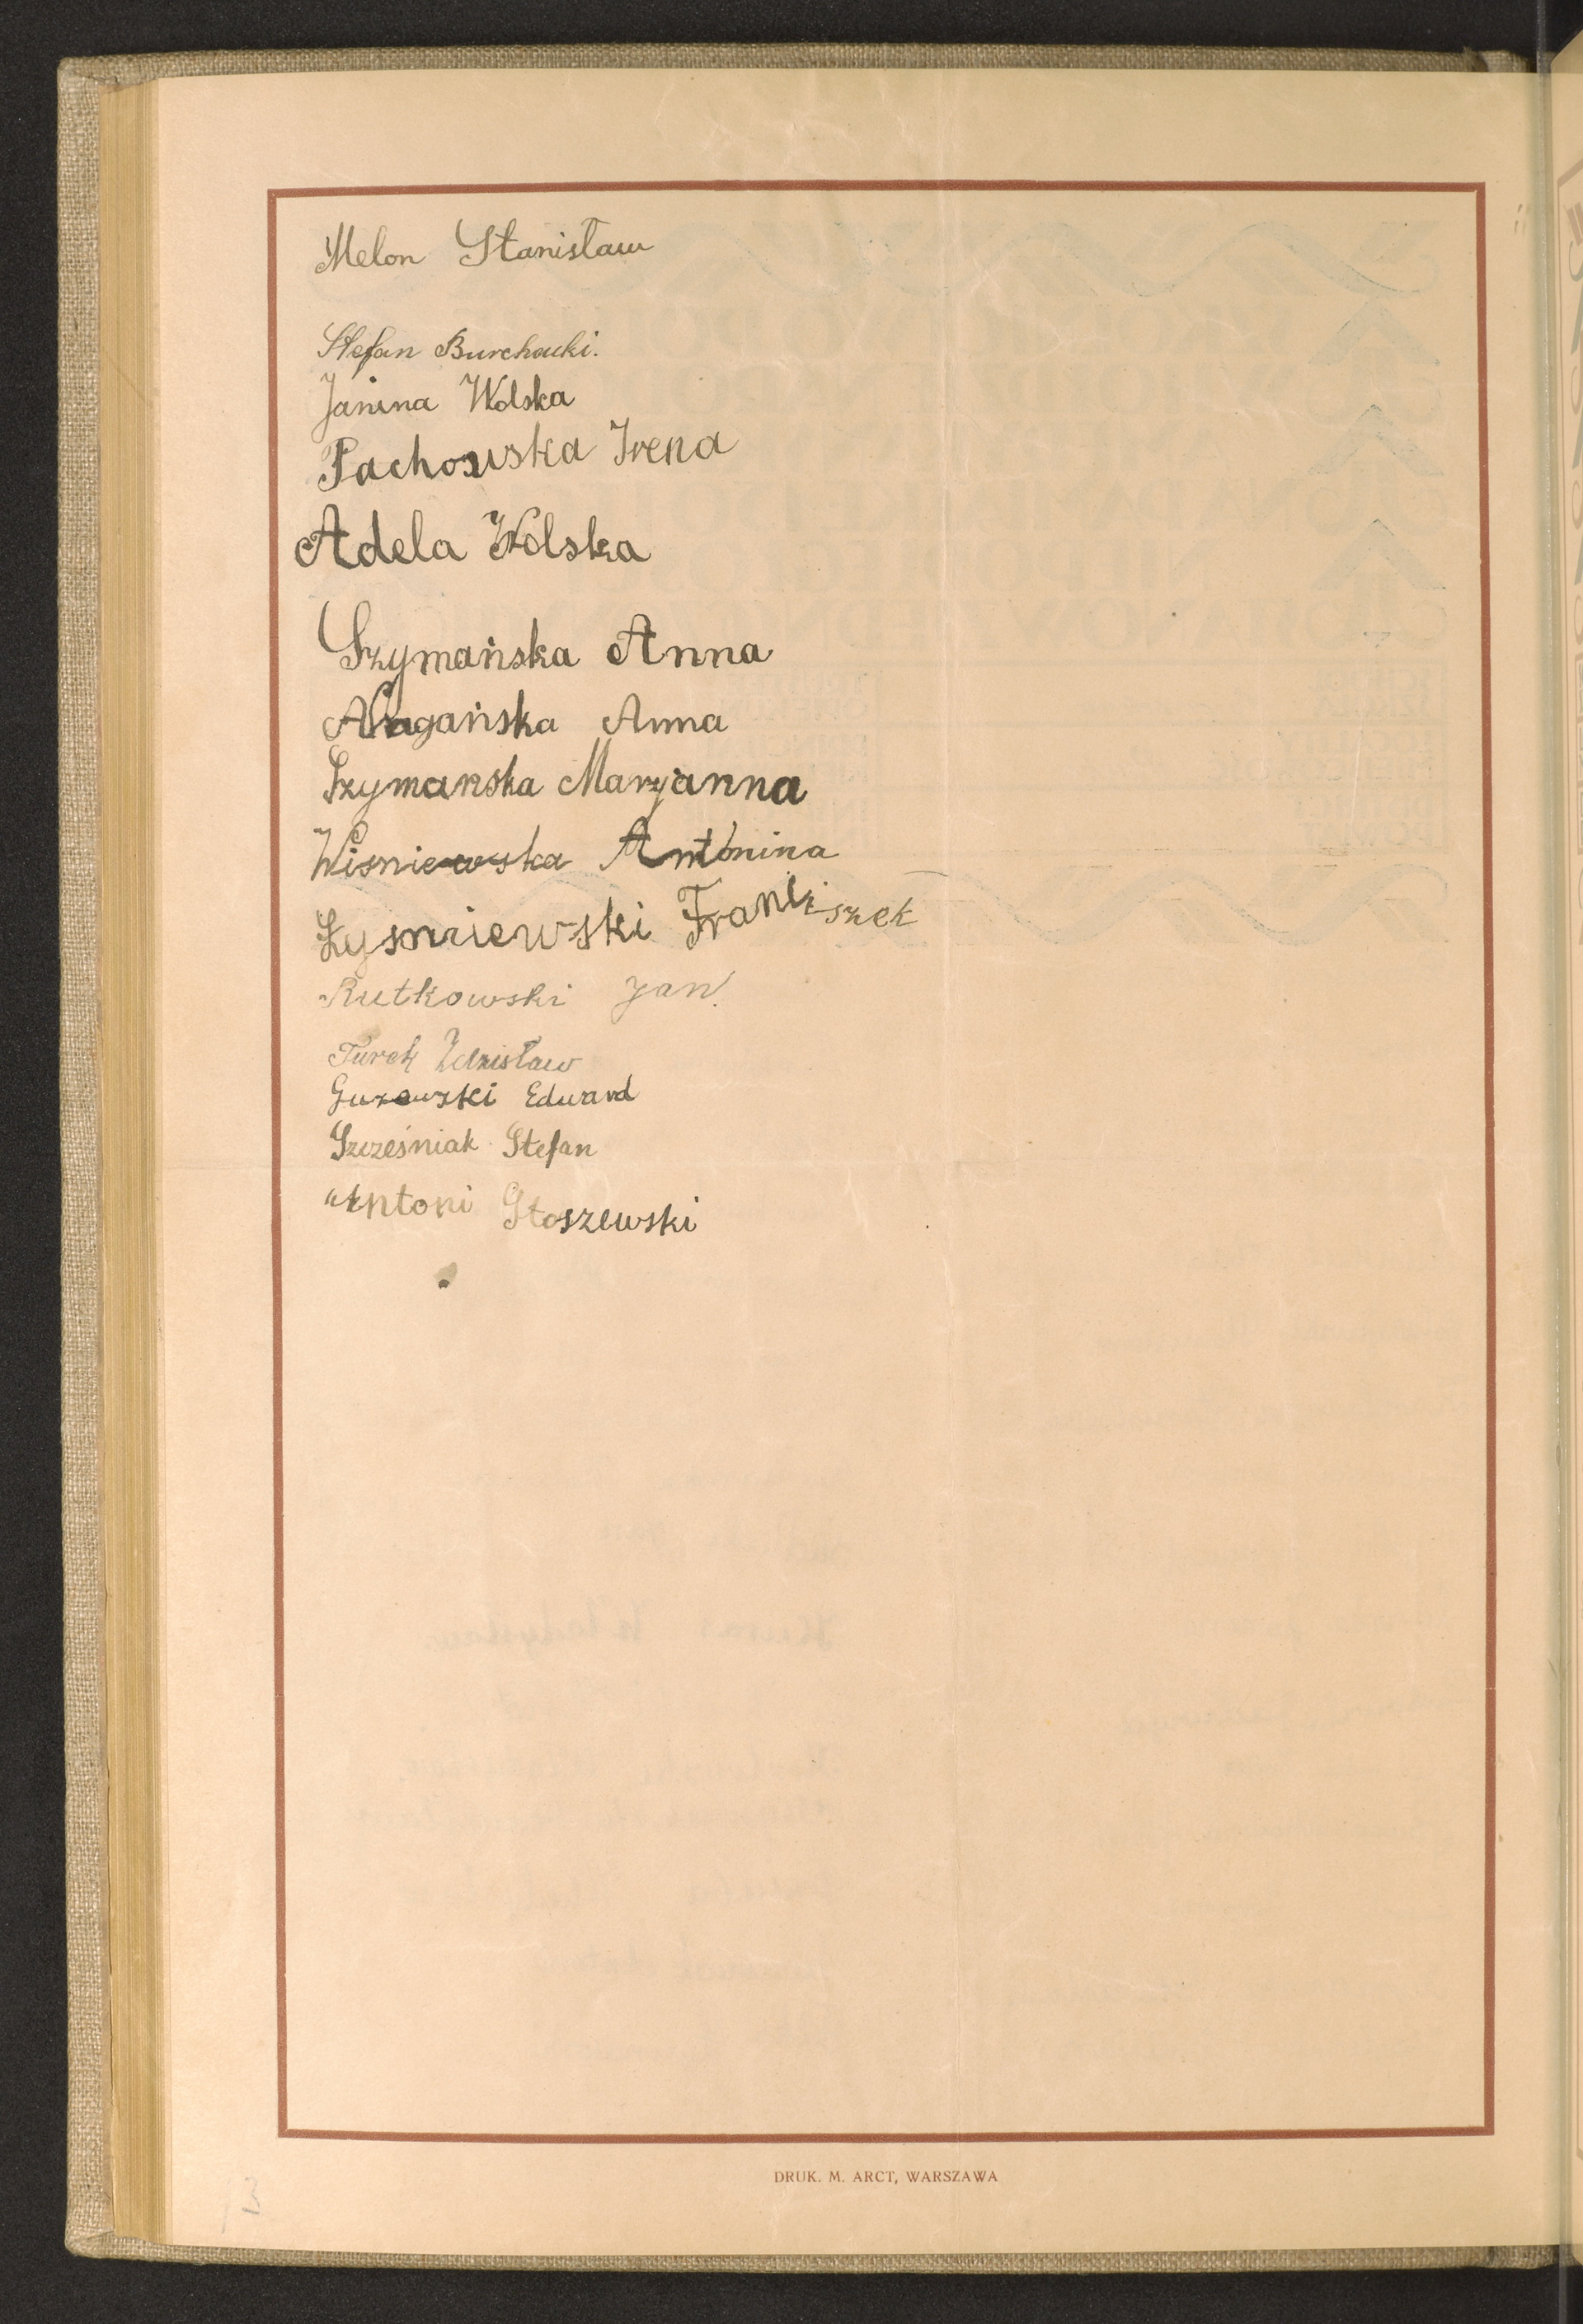 Melon Stanisław
Stefan Burchacki.
Janina Wolska
Pachowska Irena
Adela Wolska
Szymańska Anna
Anna
Szymanska Maryanna
Wisniewska Antonina
Franciszek
Rutkowski Jan
Turek Zdzisław
Guzowski Edward
Szcześniak Stefan
Antoni Staszewski
DRUK. M. ARCT, WARSZAWA